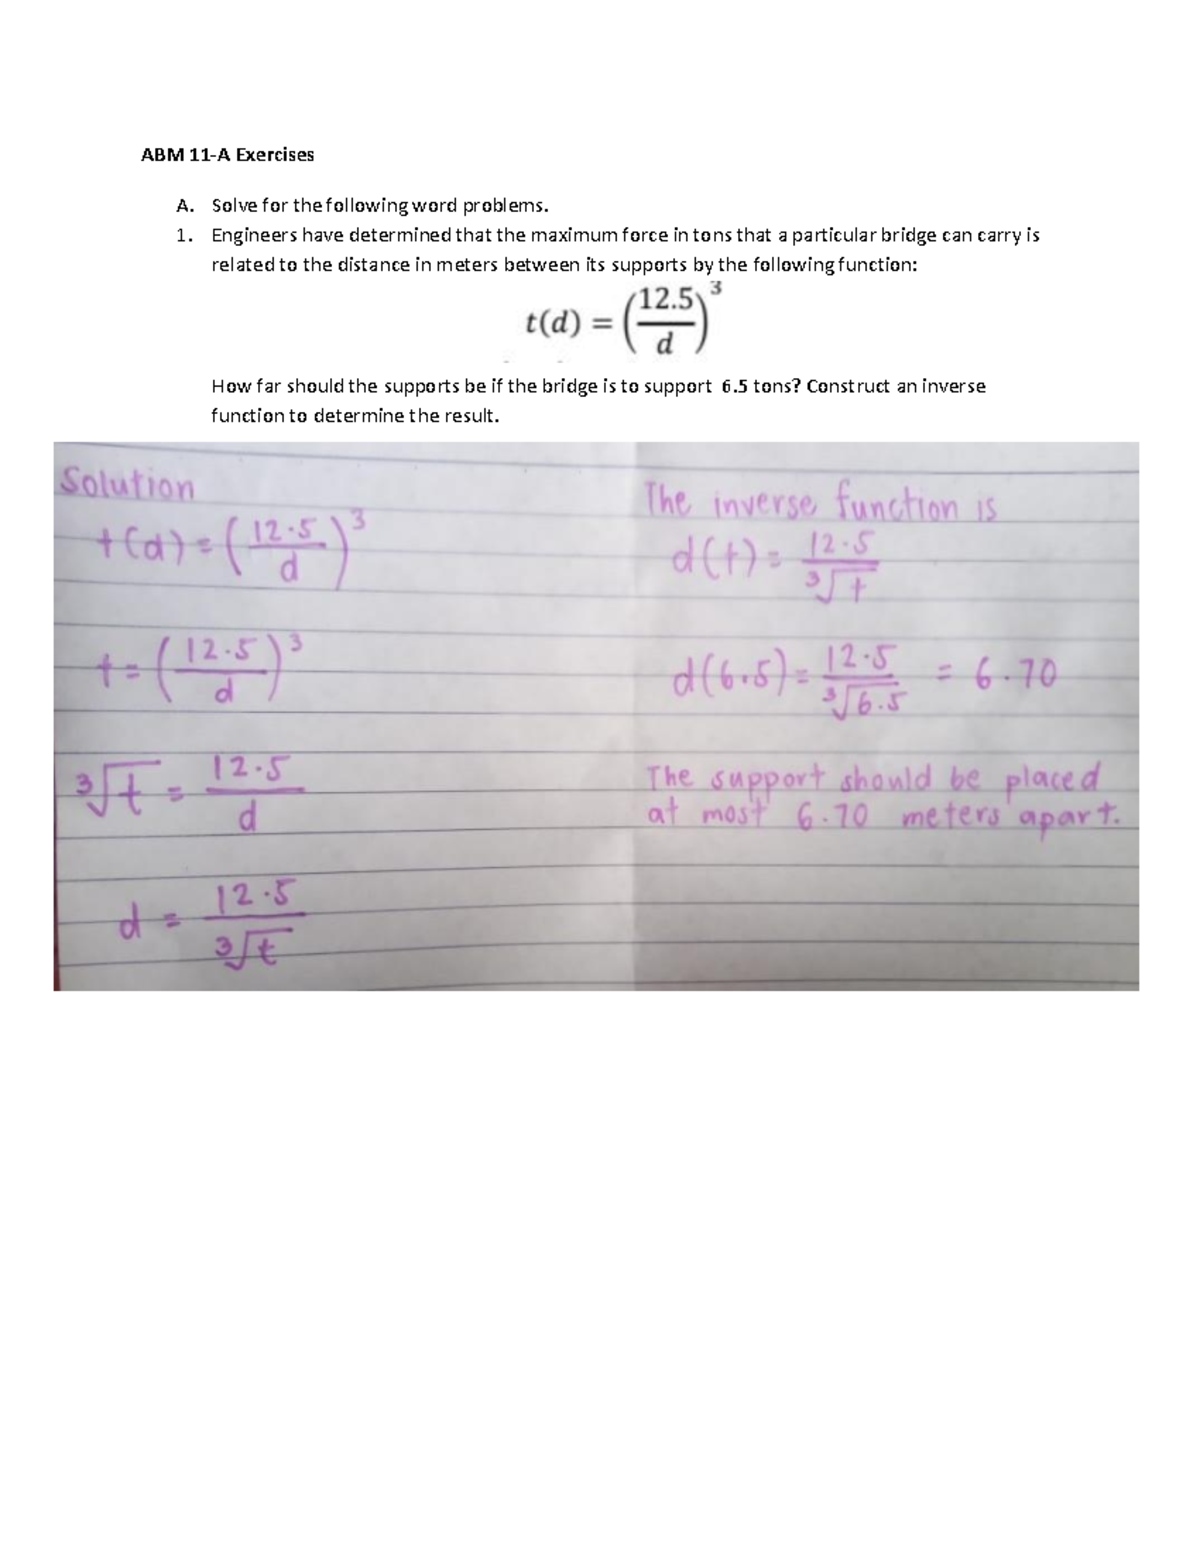 ABM 11-A Exercises
A. Solve for the following word problems.
1. Engineers have determined that the maximum force in tons that a particular bridge can carry is
related to the distance in meters between its supports by the following function:
t(d) = (12.5/d)^3
How far should the supports be if the bridge is to support 6.5 tons? Construct an inverse
function to determine the result.
Solution
t(d) = (12.5/d)^3
t = (12.5/d)^3
∛t = 12.5/d
d = 12.5/∛t
The inverse function is
d(t) = 12.5/∛t
d(6.5) = 12.5/∛6.5 = 6.70
The support should be placed
at most 6.70 meters apart.